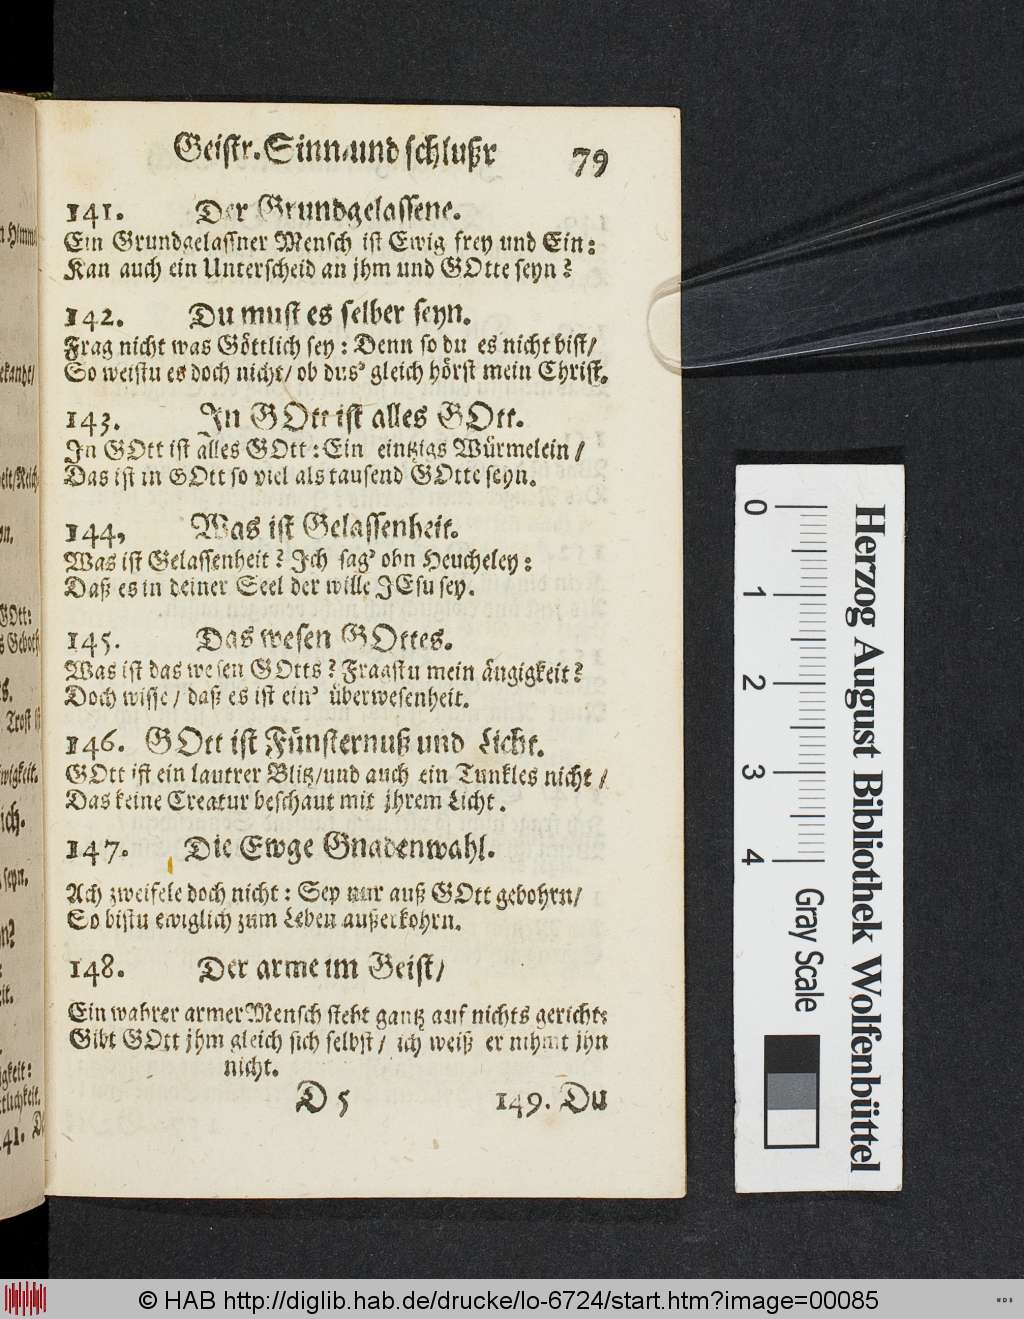 Geistr. Sinn-und schlußr 79
141. Der Grundgelassene.
Ein Grundgelassner Mensch ist Ewig frey und Ein:
Kan auch ein Unterscheid an jhm und GOtte seyn?
142. Du must es selber seyn.
Frag nicht was Göttlich sey: Denn so du es nicht bist/
So weistu es doch nicht/ ob dus' gleich hörst mein Christ.
143. In GOtt ist alles GOtt.
In GOtt ist alles GOtt: Ein eintzigs Würmelein /
Das ist in GOtt so viel als tausend GOtte seyn.
144, Was ist Gelassenheit.
Was ist Gelassenheit? Ich sag' ohn Heucheley:
Daß es in deiner Seel der wille JEsu sey.
145. Das wesen GOttes.
Was ist das wesen GOtts? Fragstu mein ängigkeit?
Doch wisse / daß es ist ein' überwesenheit.
146. GOtt ist Fünsternuß und Licht.
GOtt ist ein lautrer Blitz/und auch ein Tunkles nicht /
Das keine Creatur beschaut mit jhrem Licht.
147. Die Ewge Gnadenwahl.
Ach zweifele doch nicht: Sey nur auß GOtt gebohrn/
So bistu ewiglich zum Leben außerkohrn.
148. Der arme im Geist/
Ein wahrer armer Mensch steht gantz auf nichts gericht:
Gibt GOtt jhm gleich sich selbst/ ich weiß er nihmt jhn
nicht.
D 5 149. Du
Herzog August Bibliothek Wolfenbüttel
0 1 2 3 4
Gray Scale
© HAB http://diglib.hab.de/drucke/lo-6724/start.htm?image=00085